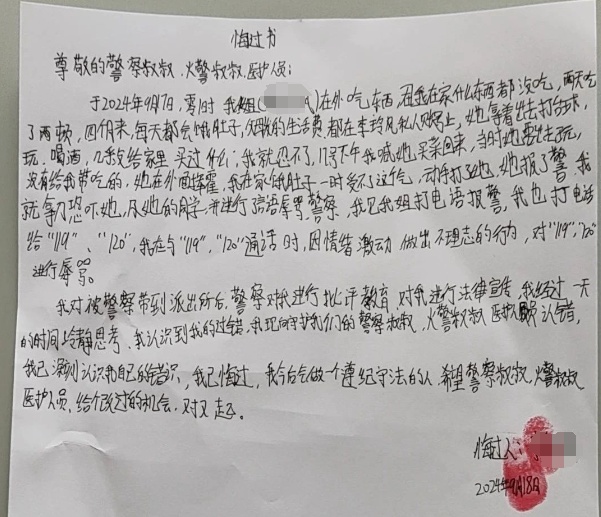 悔过书
尊敬的警察叔叔、火警叔叔、医护人员:
于2024年9月7日,零时 我姐( )在外吃东西,且我在家什么东西都没吃,两天吃
了两顿,四个月来,每天都会饿肚子,父母的生活费都在李 私人账号上,她拿着去打台球,
玩、喝酒,几乎没给家里买过什么;我就忍不了,17号下午我喊她买菜回来,当时她要出去玩,
没有给我带吃的,她在外面 ,我在家饿肚子一时受不了这个气,动手打了她,她报了警,我
就拿刀恐吓她,及她的同学,并进行言语辱骂警察,我见我姐打电话报警,我也打电话
给"119"、"120",我在与"119","120"通话时,因情绪激动 做出不理志的行为,对"119","120"
进行辱骂。
我对被警察带到派出所后,警察对我进行批评教育,对我进行法律宣传,我经过一天
的时间冷静思考,我认识到我的过错,我现向守护我们的警察叔叔,火警叔叔 医护人员认错,
我已深刻认识我自己的错识,我已悔过,我今后会做一个遵纪守法的人,希望警察叔叔,火警叔叔
医护人员,给个改过的机会,对不起。
悔过人:
2024年9月18日